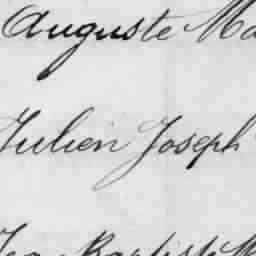 Auguste Ma
Julien Joseph
Jea Baptiste M